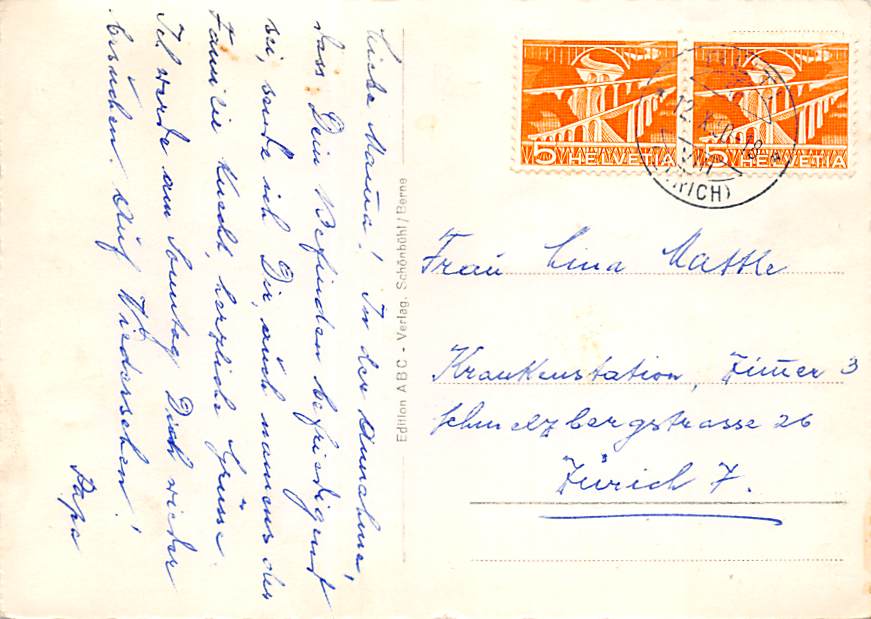 Liebe Mama! In der Annahme,
dass Dein Befinden befriedigend
sei, sende ich Dir, auch namens der
Familie Knecht, herzliche Grüsse.
Ich werde am Sonntag Dich wieder
besuchen. Auf Wiedersehen!
Papa
Edition ABC - Verlag, Schönbühl/Berne
5 HELVETIA
5 HELVETIA
12.X.
(ZÜRICH)
Frau Lina Mattle
Krankenstation, Zimmer 3
Schmelzbergstrasse 26
Zürich 7.